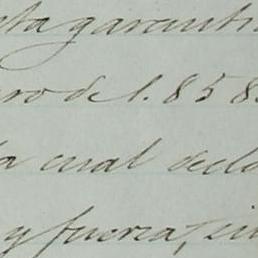 ta garanti
ro de 1.858
a cual decla
y fuerza, sin